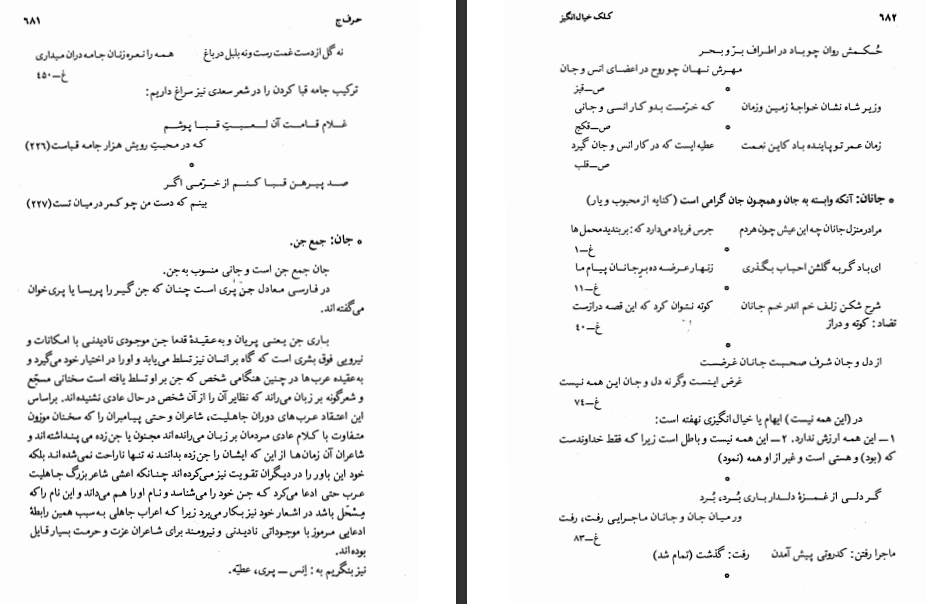 حرف ج
۶۸۱
نه گل از دست غمت رست و نه بلبل در باغ
همه را نعره زنان جامه دران میداری
غ ـ ۴۵۰
ترکیب جامه قبا کردن را در شعر سعدی نیز سراغ داریم:
غلام قامت آن لعبت قبا پوشم
که در محبت رویش هزار جامه قباست (۲۲۶)
صد پیرهن قبا کنم از خرّمی اگر
بینم که دست من چو کمر در میان تست (۲۲۷)
* جان: جمع جن.
جان جمع جن است و جانی منسوب به جن.
در فارسی معادل جنّ پَری است چنان که جن گیر را پریسا یا پری خوان
می‌گفته‌اند.
باری جن یعنی پریان و به عقیدهٔ قدما جن موجودی نادیدنی با امکانات و
نیرویی فوق بشری است که گاه بر انسان نیز تسلط می‌یابد و او را در اختیار خود می‌گیرد و
به عقیده عرب‌ها در چنین هنگامی شخص که جن بر او تسلط یافته است سخنانی مسجّع
و شعرگونه بر زبان می‌راند که نظایر آن را از آن شخص در حال عادی نشنیده‌اند. براساس
این اعتقاد عرب‌های دوران جاهلیت، شاعران و حتی پیامبران را که سخنان موزون
متفاوت با کلام عادی مردمان بر زبان می‌رانده‌اند مجنون یا جن‌زده می‌پنداشته‌اند و
شاعران آن زمان‌ها از این که ایشان را جن‌زده بدانند نه تنها ناراحت نمی‌شده‌اند بلکه
خود این باور را در دیگران تقویت نیز می‌کرده‌اند چنانکه اعشی شاعر بزرگ جاهلیت
عرب حتی ادعا می‌کرد که جن خود را می‌شناسد و نام او را هم می‌داند و این نام را که
مِسْحَل باشد در اشعار خود نیز بکار می‌برد زیرا که اعراب جاهلی به سبب همین رابطهٔ
ادعایی مرموز با موجوداتی نادیدنی و نیرومند برای شاعران عزت و حرمت بسیار قایل
بوده‌اند.
نیز بنگریم به: اِنس ـ پری، عطیّه.
۶۸۲
کلک خیال‌انگیز
حُکمش روان چو باد در اطراف برّ و بحر
مهرش نهان چو روح در اعضای انس و جان
ص ـ قیز
وزیر شاه نشان خواجهٔ زمین و زمان
که خرّمست بدو کار انسی و جانی
ص ـ قکج
زمان عمر تو پاینده باد کاین نعمت
عطیه ایست که در کار انس و جان گیرد
ص ـ قلب
* جانان: آنکه وابسته به جان و همچون جان گرامی است (کنایه از محبوب و یار)
مرا در منزل جانان چه امن عیش چون هر دم
جرس فریاد می‌دارد که: بر بندید محمل‌ها
غ ـ ۱
ای باد گر به گلشن احباب بگذری
زنهار عرضه ده برِ جانان پیام ما
غ ـ ۱۱
شرح شکن زلف خم اندر خم جانان
کوته نتوان کرد که این قصه درازست
تضاد: کوته و دراز
غ ـ ۴۰
از دل و جان شرف صحبت جانان غرضست
غرض اینست وگرنه دل و جان این همه نیست
غ ـ ۷۴
در (این همه نیست) ایهام یا خیال‌انگیزی نهفته است:
۱ ـ این همه ارزش ندارد. ۲ ـ این همه نیست و باطل است زیرا که فقط خداوندست
که (بود) و هستی است و غیر از او همه (نمود)
گر دلی از غمزهٔ دلدار باری بُرد، بُرد
ور میان جان و جانان ماجرایی رفت، رفت
غ ـ ۸۳
ماجرا رفتن: کدروتی پیش آمدن
رفت: گذشت (تمام شد)